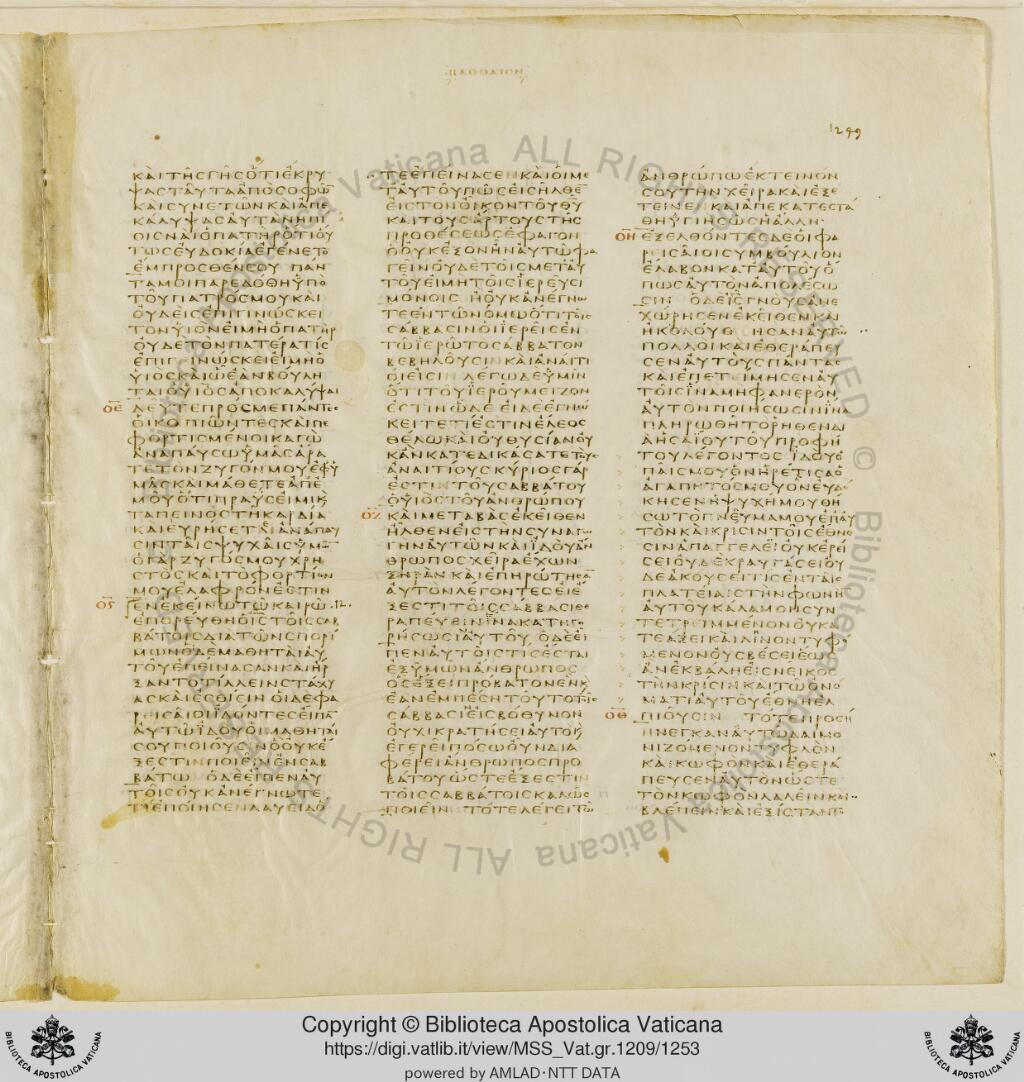 1249
ΚΑΙΤΗΣΓΗΣΟΤΙΕΚΡΥ
ΨΑΣΤΑΥΤΑΑΠΟΣΟΦΩ
ΚΑΙΣΥΝΕΤΩΝΚΑΙΑΠΕ
ΚΑΛΥΨΑΣΑΥΤΑΝΗΠΙ
ΟΙΣΝΑΙΟΠΑΤΗΡΟΤΙΟΥ
ΤΩΣΕΥΔΟΚΙΑΕΓΕΝΕΤΟ
ΕΜΠΡΟΣΘΕΝΣΟΥ ΠΑΝ
ΤΑΜΟΙΠΑΡΕΔΟΘΗΥΠΟ
ΤΟΥΠΑΤΡΟΣΜΟΥΚΑΙ
ΟΥΔΕΙΣΕΠΙΓΙΝΩΣΚΕΙ
ΤΟΝΥΙΟΝΕΙΜΗΟΠΑΤΗΡ
ΟΥΔΕΤΟΝΠΑΤΕΡΑΤΙΣ
ΕΠΙΓΙΝΩΣΚΕΙΕΙΜΗΟ
ΥΙΟΣΚΑΙΩΕΑΝΒΟΥΛΗ
ΤΑΙΟΥΙΟΣΑΠΟΚΑΛΥΨΑΙ
ΟΕ ΔΕΥΤΕΠΡΟΣΜΕΠΑΝΤΕΣ
ΟΙΚΟΠΙΩΝΤΕΣΚΑΙΠΕ
ΦΟΡΤΙΣΜΕΝΟΙΚΑΓΩ
ΑΝΑΠΑΥΣΩΥΜΑΣΑΡΑ
ΤΕΤΟΝΖΥΓΟΝΜΟΥΕΦΥ
ΜΑΣΚΑΙΜΑΘΕΤΕΑΠΕ
ΜΟΥΟΤΙΠΡΑΥΣΕΙΜΙΚ
ΤΑΠΕΙΝΟΣΤΗΚΑΡΔΙΑ
ΚΑΙΕΥΡΗΣΕΤΑΙΑΝΑΠΑΥ
ΣΙΝΤΑΙΣΨΥΧΑΙΣΥΜΩ
ΟΓΑΡΖΥΓΟΣΜΟΥΧΡΗ
ΣΤΟΣΚΑΙΤΟΦΟΡΤΙΟΝ
ΜΟΥΕΛΑΦΡΟΝΕΣΤΙΝ
ΟϚ ΕΝΕΚΕΙΝΩΤΩΚΑΙΡΩ .12.
ΕΠΟΡΕΥΘΗΟΙΣΤΟΙΣΣΑΒ
ΒΑΤΟΙΣΔΙΑΤΩΝΣΠΟΡΙ
ΜΩΝΟΙΔΕΜΑΘΗΤΑΙΑΥ
ΤΟΥΕΠΕΙΝΑΣΑΝΚΑΙΗΡ
ΞΑΝΤΟΤΙΛΛΕΙΝΣΤΑΧΥ
ΑΣΚΑΙΕΣΘΙΕΙΝ ΟΙΔΕΦΑ
ΡΕΙΣΑΙΟΙΙΔΟΝΤΕΣΕΙΠΑ
ΑΥΤΩΙΔΟΥΟΙΜΑΘΗΤΑΙ
ΣΟΥΠΟΙΟΥΣΙΝΟΟΥΚΕ
ΞΕΣΤΙΝΠΟΙΕΙΝΕΝΣΑΒ
ΒΑΤΩ ΟΔΕΕΙΠΕΝΑΥ
ΤΟΙΣΟΥΚΑΝΕΓΝΩΤΕ
ΤΙΕΠΟΙΗΣΕΝΔΑΥΕΙΔΟ
ΤΕΕΠΕΙΝΑΣΕΝΚΑΙΟΙΜΕ
ΤΑΥΤΟΥΠΩΣΕΙΣΗΛΘΕ
ΕΙΣΤΟΝΟΙΚΟΝΤΟΥΘΥ
ΚΑΙΤΟΥΣΑΡΤΟΥΣΤΗΣ
ΠΡΟΘΕΣΕΩΣΕΦΑΓΟΝ
ΟΟΥΚΕΞΟΝΗΝΑΥΤΩΦΑ
ΓΕΙΝΟΥΔΕΤΟΙΣΜΕΤΑΥ
ΤΟΥΕΙΜΗΤΟΙΣΙΕΡΕΥΣΙ
ΜΟΝΟΙΣ ΗΟΥΚΑΝΕΓΝΩ
ΤΕΕΝΤΩΝΟΜΩΟΤΙΤΟΙΣ
ΣΑΒΒΑΣΙΝΟΙΙΕΡΕΙΣΕΝ
ΤΩΙΕΡΩΤΟΣΑΒΒΑΤΟΝ
ΒΕΒΗΛΟΥΣΙΝΚΑΙΑΝΑΙΤΙ
ΟΙΕΙΣΙΝ ΛΕΓΩΔΕΥΜΙΝ
ΟΤΙΤΟΥΙΕΡΟΥΜΕΙΖΟΝ
ΕΣΤΙΝΩΔΕ ΕΙΔΕΕΓΝΩ
ΚΕΙΤΕΤΙΕΣΤΙΝΕΛΕΟΣ
ΘΕΛΩΚΑΙΟΥΘΥΣΙΑΝΟΥ
ΚΑΝΚΑΤΕΔΙΚΑΣΑΤΕΤΟΥΣ
ΑΝΑΙΤΙΟΥΣΚΥΡΙΟΣΓΑΡ
ΕΣΤΙΝΤΟΥΣΑΒΒΑΤΟΥ
ΟΥΙΟΣΤΟΥΑΝΘΡΩΠΟΥ
ΟΖ ΚΑΙΜΕΤΑΒΑΣΕΚΕΙΘΕΝ
ΗΛΘΕΝΕΙΣΤΗΝΣΥΝΑΓΩ
ΓΗΝΑΥΤΩΝΚΑΙΙΔΟΥΑΝ
ΘΡΩΠΟΣΧΕΙΡΑΕΧΩΝ
ΞΗΡΑΝ ΚΑΙΕΠΗΡΩΤΗΣΑ
ΑΥΤΟΝΛΕΓΟΝΤΕΣΕΙΕ
ΞΕΣΤΙΤΟΙΣΣΑΒΒΑΣΙΘΕ
ΡΑΠΕΥΕΙΝΙΝΑΚΑΤΗΓΟ
ΡΗΣΩΣΙΑΥΤΟΥ ΟΔΕΕΙ
ΠΕΝΑΥΤΟΙΣΤΙΣΕΣΤΑΙ
ΕΞΥΜΩΝΑΝΘΡΩΠΟΣ
ΟΣΕΞΕΙΠΡΟΒΑΤΟΝΕΝΚ
ΕΑΝΕΜΠΕΣΗΤΟΥΤΟΤΟΙΣ
ΣΑΒΒΑΣΙΕΙΣΒΟΘΥΝΟΝ
ΟΥΧΙΚΡΑΤΗΣΕΙΑΥΤΟΚ
ΕΓΕΡΕΙΠΟΣΩΟΥΝΔΙΑ
ΦΕΡΕΙΑΝΘΡΩΠΟΣΠΡΟ
ΒΑΤΟΥΩΣΤΕΕΞΕΣΤΙΝ
ΤΟΙΣΣΑΒΒΑΤΟΙΣΚΑΛΩΣ
ΠΟΙΕΙΝ ΤΟΤΕΛΕΓΕΙΤΩ
ΑΝΘΡΩΠΩΕΚΤΕΙΝΟΝ
ΣΟΥΤΗΝΧΕΙΡΑΚΑΙΕΞΕ
ΤΕΙΝΕΝΚΑΙΑΠΕΚΑΤΕΣΤΑ
ΘΗΥΓΙΗΣΩΣΗΑΛΛΗ
ΟΗ ΕΞΕΛΘΟΝΤΕΣΔΕΟΙΦΑ
ΡΕΙΣΑΙΟΙΣΥΜΒΟΥΛΙΟΝ
ΕΛΑΒΟΝΚΑΤΑΥΤΟΥΟ
ΠΩΣΑΥΤΟΝΑΠΟΛΕΣΩ
ΣΙΝ ΟΔΕΙΣΓΝΟΥΣΑΝΕ
ΧΩΡΗΣΕΝΕΚΕΙΘΕΝΚΑΙ
ΗΚΟΛΟΥΘΗΣΑΝΑΥΤΩ
ΠΟΛΛΟΙΚΑΙΕΘΕΡΑΠΕΥ
ΣΕΝΑΥΤΟΥΣΠΑΝΤΑΣ
ΚΑΙΕΠΕΤΙΜΗΣΕΝΑΥ
ΤΟΙΣΙΝΑΜΗΦΑΝΕΡΟΝ
ΑΥΤΟΝΠΟΙΗΣΩΣΙΝΙΝΑ
ΠΛΗΡΩΘΗΤΟΡΗΘΕΝΔΙ
ΑΗΣΑΙΟΥΤΟΥΠΡΟΦΗ
ΤΟΥΛΕΓΟΝΤΟΣ ΙΔΟΥΟ
ΠΑΙΣΜΟΥΟΝΗΡΕΤΙΣΑΟ
ΑΓΑΠΗΤΟΣΜΟΥΟΝΕΥΔΟ
ΚΗΣΕΝΗΨΥΧΗΜΟΥΘΗ
ΣΩΤΟΠΝΕΥΜΑΜΟΥΕΠΑΥ
ΤΟΝΚΑΙΚΡΙΣΙΝΤΟΙΣΕΘΝΕ
ΣΙΝΑΠΑΓΓΕΛΕΙΟΥΚΕΡΕΙ
ΣΕΙΟΥΔΕΚΡΑΥΓΑΣΕΙΟΥ
ΔΕΑΚΟΥΣΕΙΤΙΣΕΝΤΑΙΣ
ΠΛΑΤΕΙΑΙΣΤΗΝΦΩΝΗ
ΑΥΤΟΥΚΑΛΑΜΟΝΣΥΝ
ΤΕΤΡΙΜΜΕΝΟΝΟΥΚΑ
ΤΕΑΞΕΙΚΑΙΛΙΝΟΝΤΥΦΟ
ΜΕΝΟΝΟΥΣΒΕΣΕΙΕΩΣ
ΑΝΕΚΒΑΛΗΕΙΣΝΕΙΚΟΣ
ΤΗΝΚΡΙΣΙΝΚΑΙΤΩΟΝΟ
ΜΑΤΙΑΥΤΟΥΕΘΝΗΕΛ
ΟΘ ΠΙΟΥΣΙΝ ΤΟΤΕΠΡΟΣΗ
ΝΕΓΚΑΝΑΥΤΩΔΑΙΜΟ
ΝΙΖΟΜΕΝΟΝΤΥΦΛΟΝ
ΚΑΙΚΩΦΟΝΚΑΙΕΘΕΡΑ
ΠΕΥΣΕΝΑΥΤΟΝΩΣΤΕ
ΤΟΝΚΩΦΟΝΛΑΛΕΙΝΚΑΙ
ΒΛΕΠΕΙΝΚΑΙΕΞΙΣΤΑΝΤΟ
Copyright © Biblioteca Apostolica Vaticana
https://digi.vatlib.it/view/MSS_Vat.gr.1209/1253
powered by AMLAD·NTT DATA